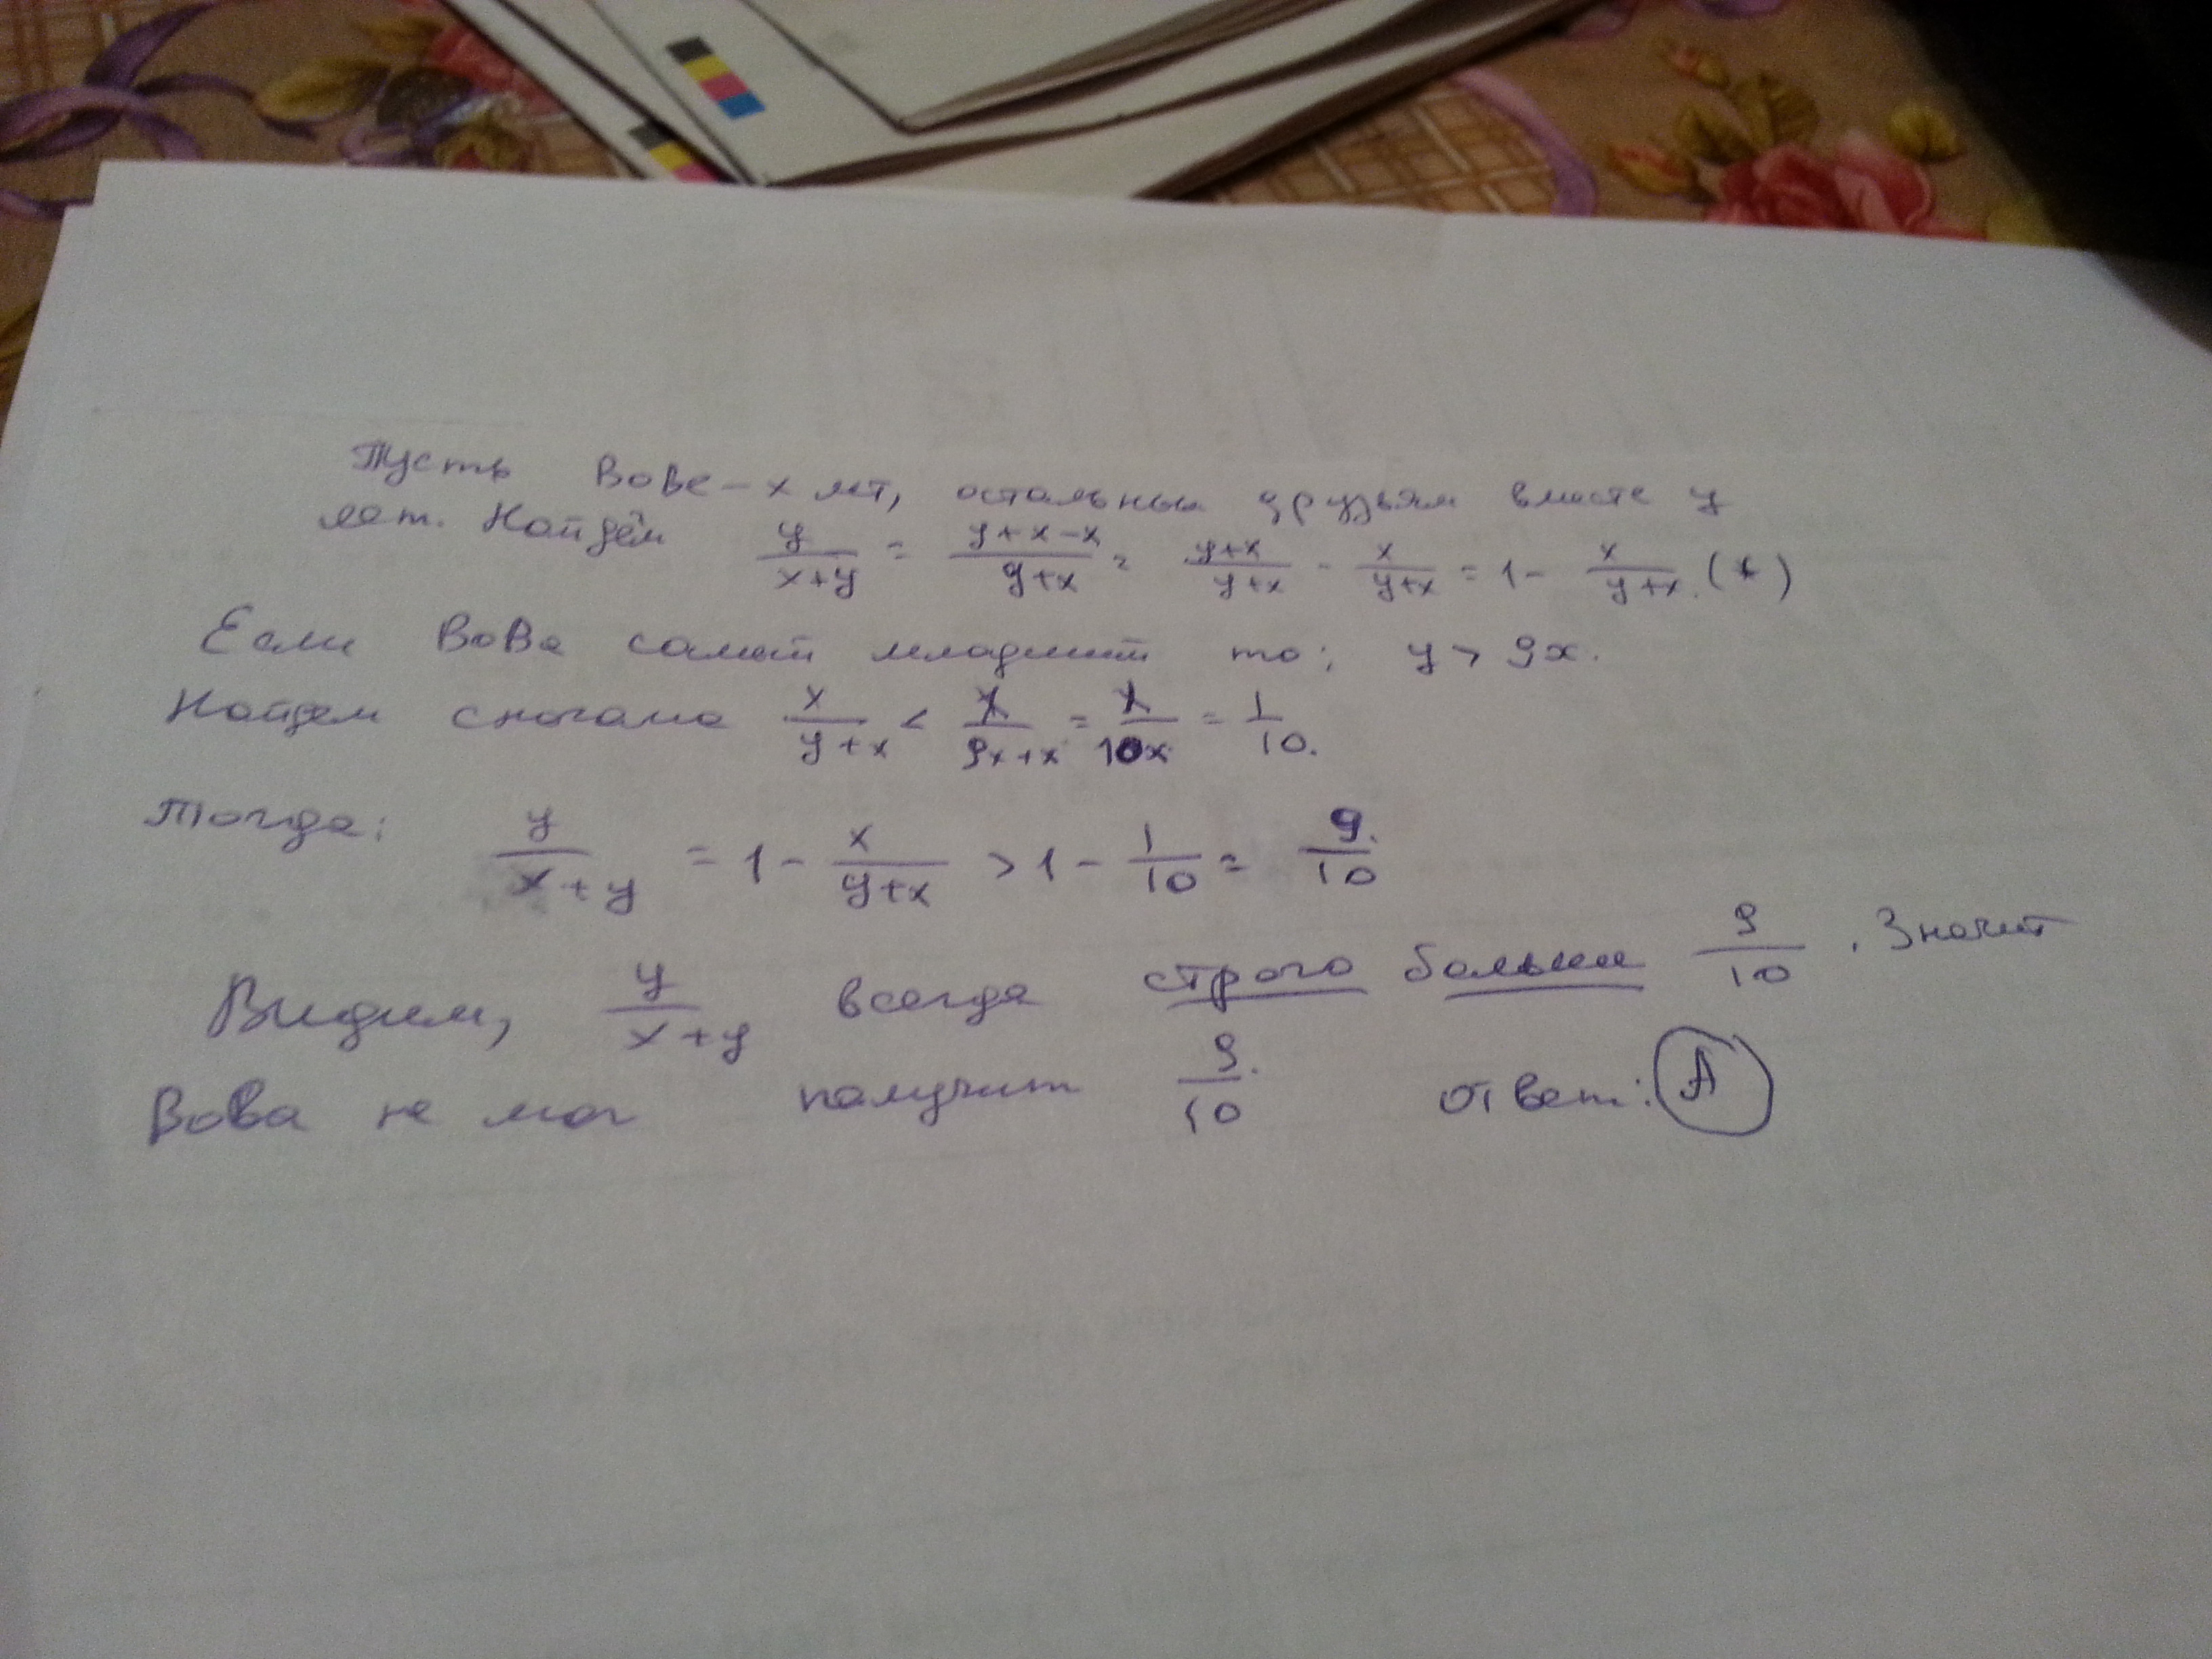 Пусть Вове - x лет, остальным друзьям вместе y
лет. Найдём y/(x+y) = (y+x-x)/(y+x) = (y+x)/(y+x) - x/(y+x) = 1 - x/(y+x). (*)
Если Вова самый младший то; y > 9x.
Найдем сначала x/(y+x) < x/(9x+x) = x/(10x) = 1/10.
Тогда: y/(x+y) = 1 - x/(y+x) > 1 - 1/10 = 9/10
Видим, y/(x+y) всегда строго больше 9/10. Значит
Вова не мог получит 9/10. Ответ: А